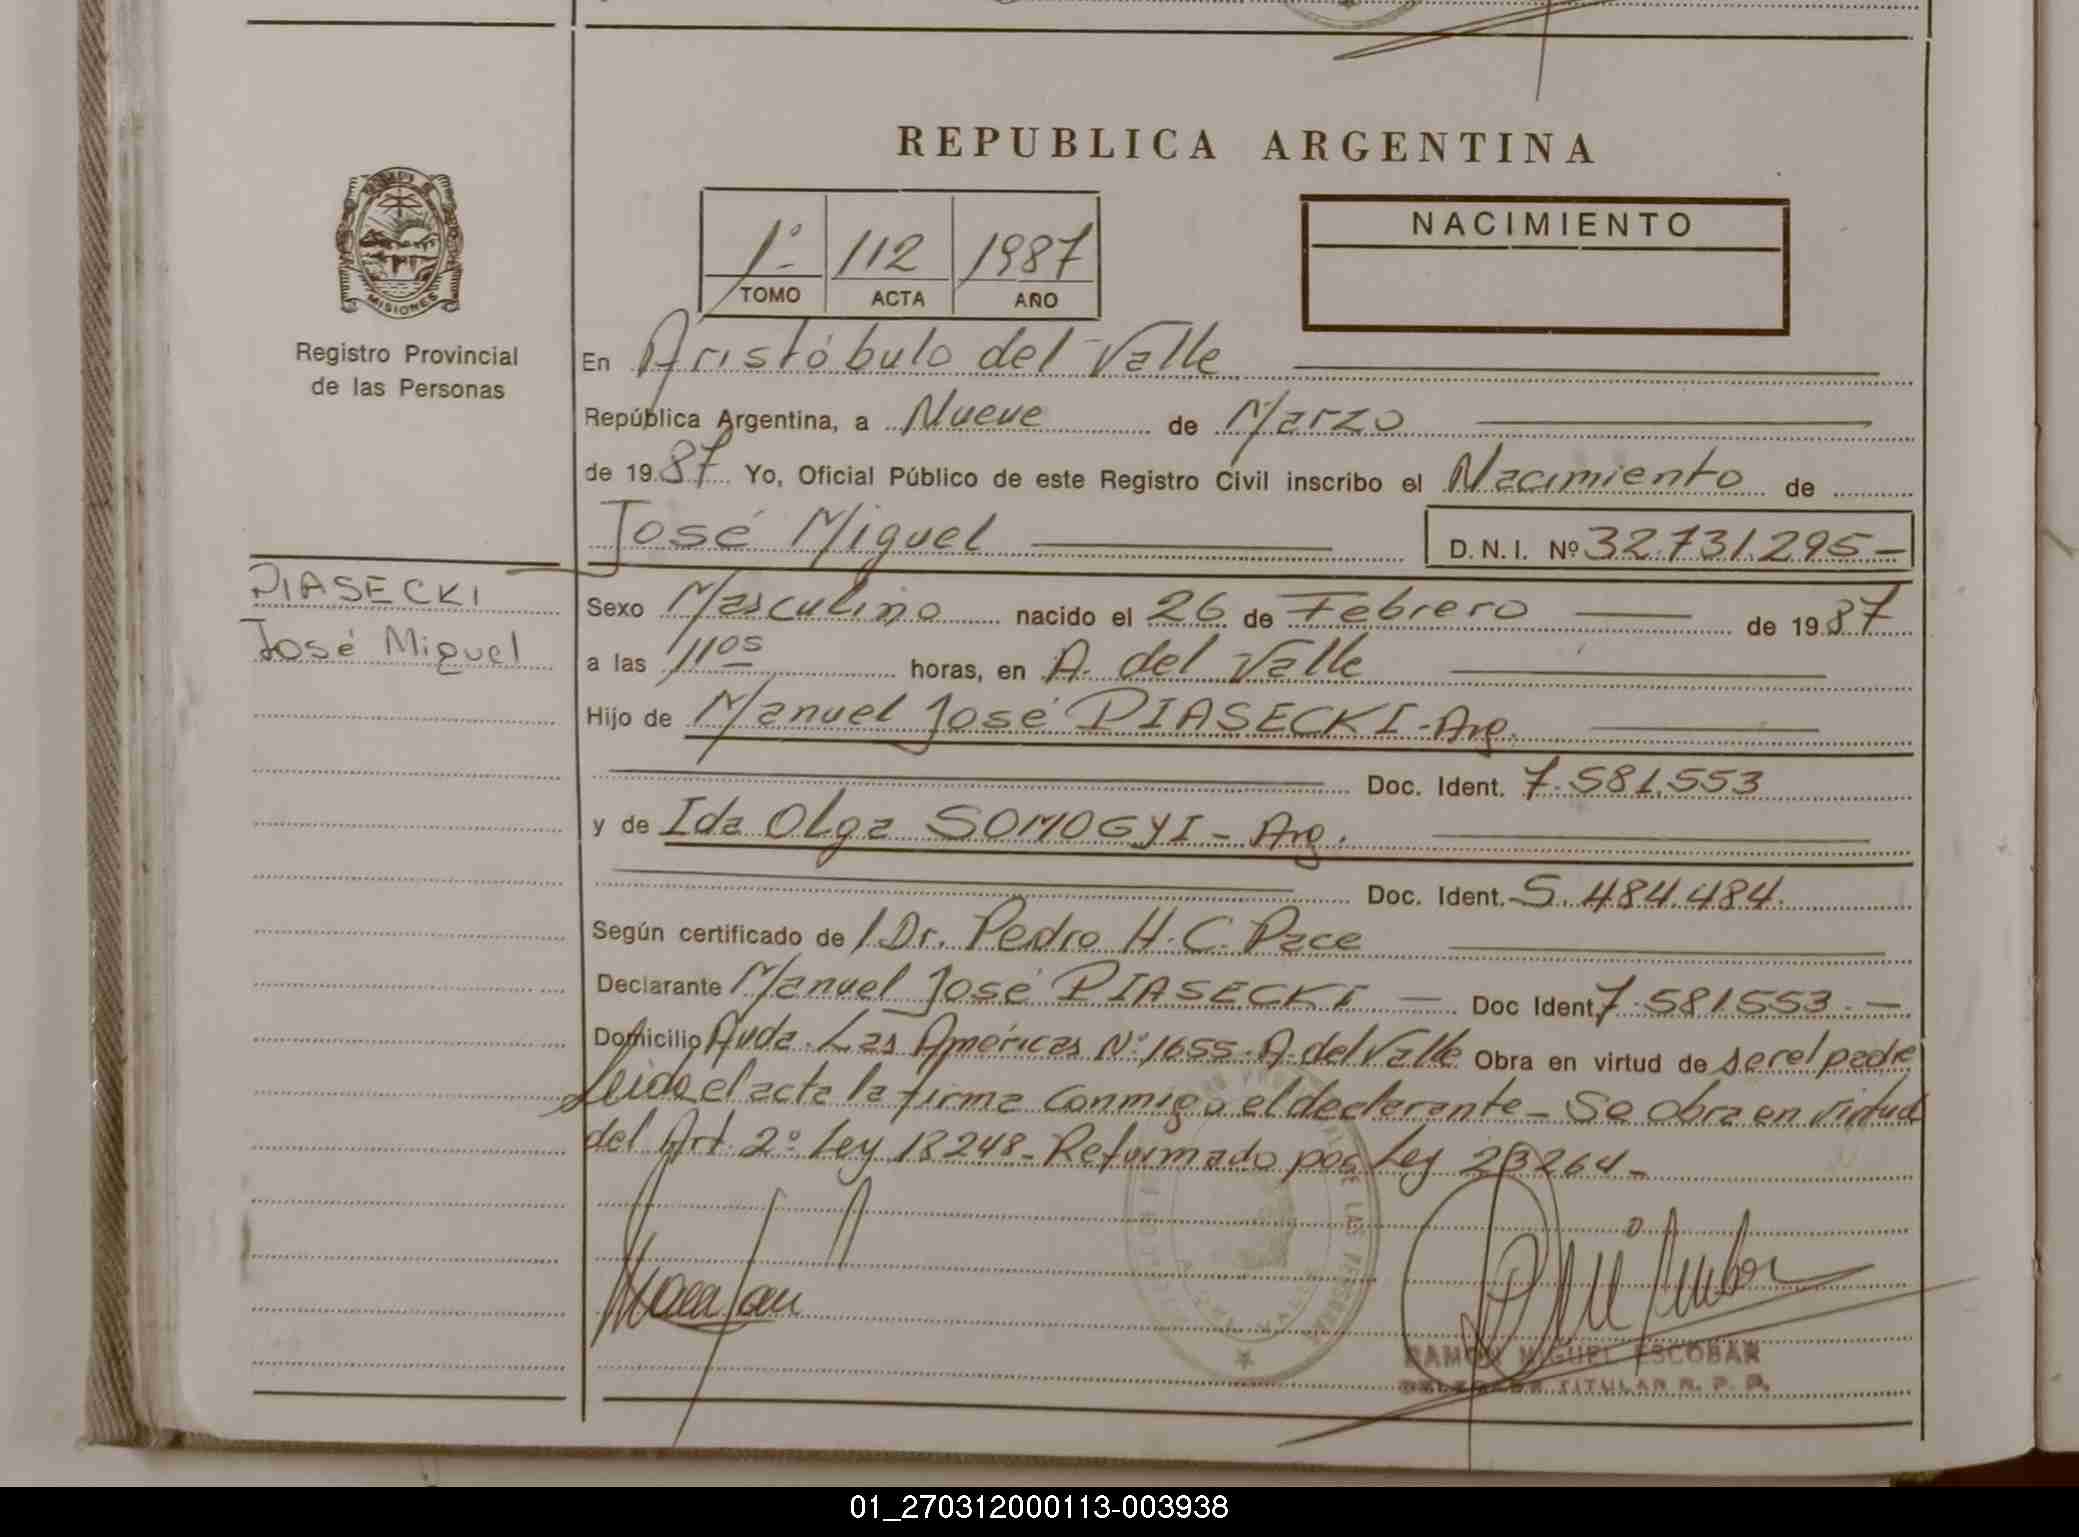 REPUBLICA ARGENTINA
NACIMIENTO
1º 112 1987
TOMO ACTA AÑO
MISIONES
Registro Provincial
de las Personas
En Aristóbulo del Valle
República Argentina, a Nueve de Marzo
de 1987 Yo, Oficial Público de este Registro Civil inscribo el Nacimiento de
José Miguel D.N.I. Nº 32.731.295-
PIASECKI
José Miguel
Sexo Masculino nacido el 26 de Febrero de 1987
a las 11 05 horas, en A. del Valle
Hijo de Manuel José PIASECKI - Arg.
Doc. Ident. 7.581.553
y de Ida Olga SOMOGYI - Arg.
Doc. Ident. 5.484.484.
Según certificado de / Dr. Pedro H. C. Pace
Declarante Manuel José PIASECKI - Doc Ident. 7.581553.-
Domicilio Avda. Las Américas Nº 1655 - A. del Valle Obra en virtud de ser el padre
Leida el acta la firma conmigo el declarante - Se obra en virtud
del Art. 2º Ley 18248 - Reformado por Ley 23264 -
RAMON MIGUEL ESCOBAR
TITULAR R. P. P.
01_270312000113-003938